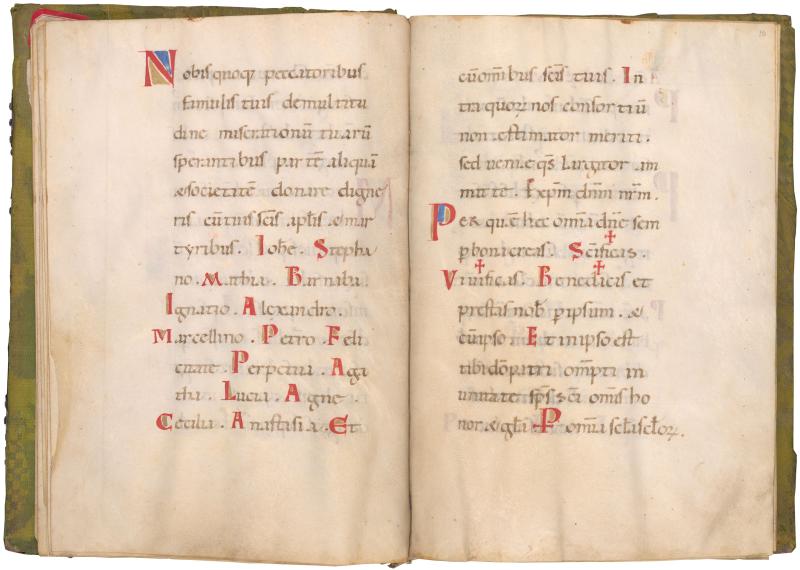 Nobis quoq; peccatoribus
famulis tuis demultitu
dine miserationū tuarū
sperantibus partē aliquā
& societatē donare digne
ris cū tuis scīs aplīs & mar
tyribus. Iohe. Stepha
no. Mathia. Barnaba.
Ignatio. Alexandro.
Marcellino. Petro. Feli
citate. Perpetua. Aga
tha. Lucia. Agne.
Cecilia. Anastasia. Et
20
cū omibus scīs tuis. In
tra quoꝝ nos consortiū
non estimator meriti.
sed venie qs̄ largitor am
mitte. Per xpm dnm nrm.
Per quē hec omia dne sem
p bona creas. Scīficas.
Viuificas. Benedicis et
prestas nob̄ p ipsum. &
cū ipso. Et in ipso est
tibi dō patri omp̄ti in
unitate sps sci omīs ho
nor & gła. P omia scła scłoꝝ.